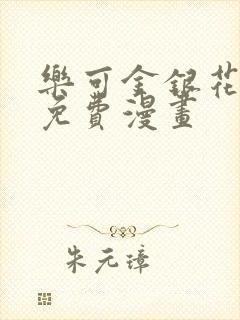 樂可金銀花
免費漫畫
朱元璋